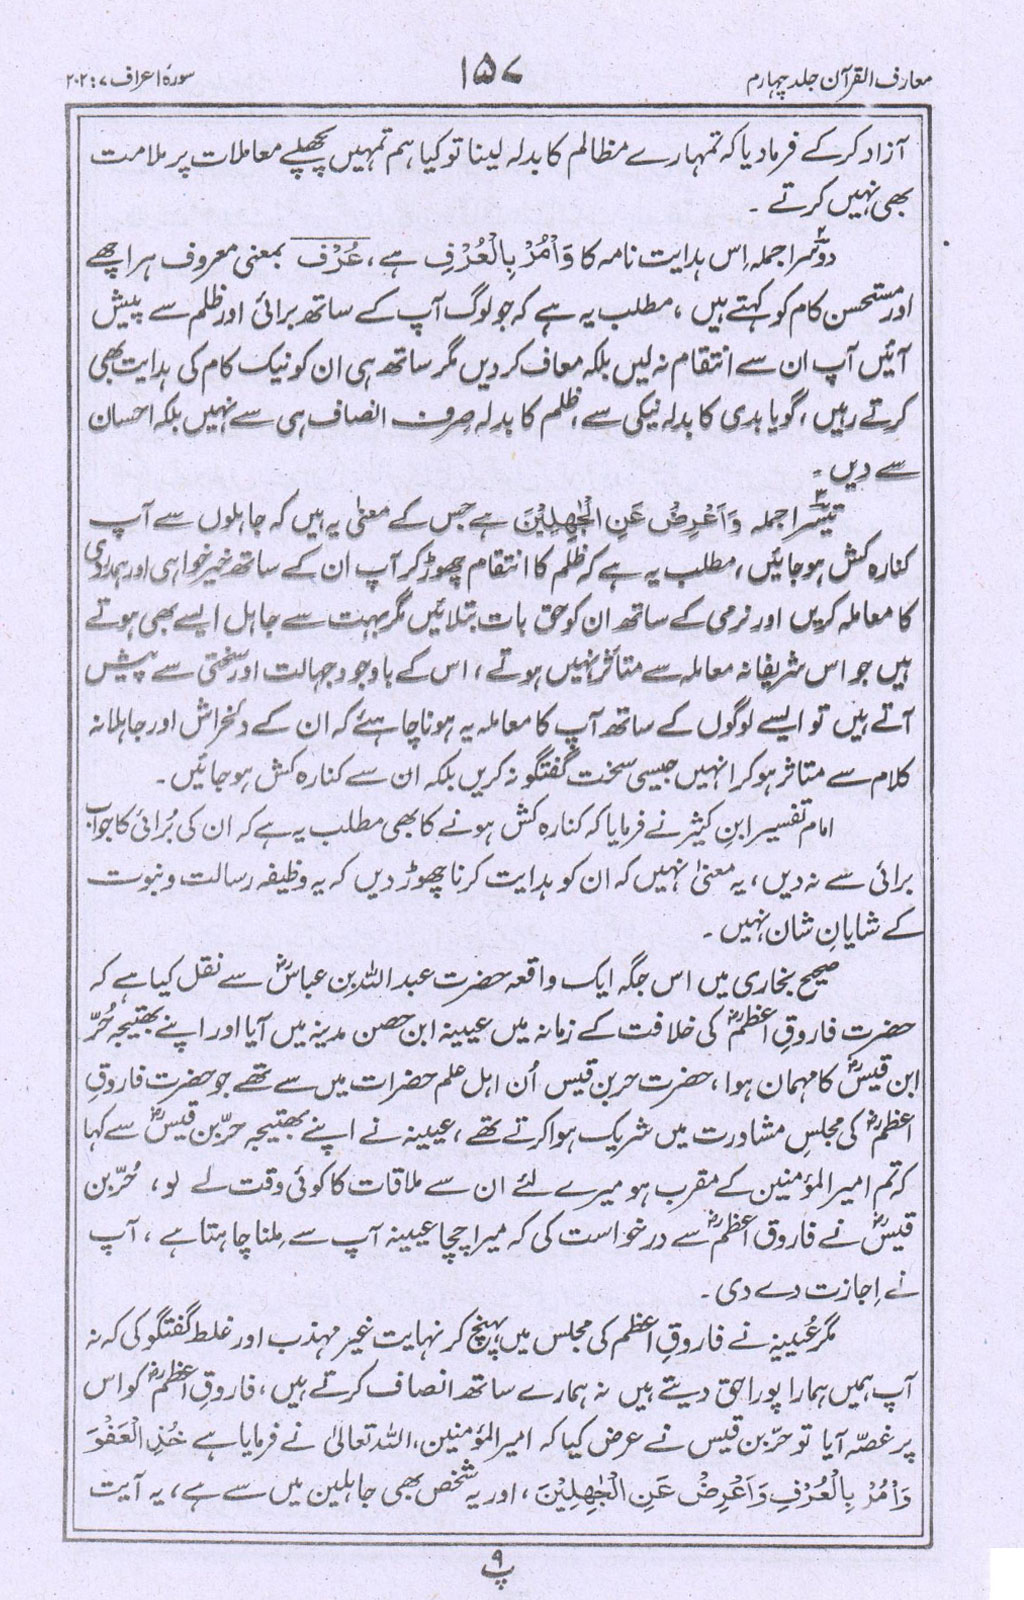 معارف القرآن جلد چہارم
۱۵۷
سورۂ اعراف ۷: ۲۰۲
آزاد کر کے فرمادیا کہ تمہارے مظالم کا بدلہ لینا تو کیا ہم تمہیں پچھلے معاملات پر ملامت
بھی نہیں کرتے ۔
دوسرا جملہ اِس ہدایت نامہ کا وَاْمُرْ بِالْعُرْفِ ہے، عُرْف بمعنی معروف ہر اچھے
اور مستحسن کام کو کہتے ہیں ، مطلب یہ ہے کہ جو لوگ آپ کے ساتھ برائی اور ظلم سے پیش
آئیں آپ ان سے انتقام نہ لیں بلکہ معاف کردیں مگر ساتھ ہی ان کو نیک کام کی ہدایت بھی
کرتے رہیں ، گویا بدی کا بدلہ نیکی سے ، ظلم کا بدلہ صرف انصاف ہی سے نہیں بلکہ احسان
سے دیں ۔
تیسرا جملہ وَاَعْرِضْ عَنِ الْجٰهِلِيْنَ ہے جس کے معنیٰ یہ ہیں کہ جاہلوں سے آپ
کنارہ کش ہو جائیں ، مطلب یہ ہے کہ ظلم کا انتقام چھوڑ کر آپ ان کے ساتھ خیرخواہی اور ہمدردی
کا معاملہ کریں اور نرمی کے ساتھ ان کو حق بات بتلائیں مگر بہت سے جاہل ایسے بھی ہوتے
ہیں جو اس شریفانہ معاملہ سے متأثر نہیں ہوتے ، اس کے باوجود جہالت اور سختی سے پیش
آتے ہیں تو ایسے لوگوں کے ساتھ آپ کا معاملہ یہ ہونا چاہئے کہ ان کے دلخراش اور جاہلانہ
کلام سے متاثر ہو کر انہیں جیسی سخت گفتگو نہ کریں بلکہ ان سے کنارہ کش ہو جائیں ۔
امام تفسیر ابنِ کثیرؒ نے فرمایا کہ کنارہ کش ہونے کا بھی مطلب یہ ہے کہ ان کی بُرائی کا جواب
برائی سے نہ دیں ، یہ معنیٰ نہیں کہ ان کو ہدایت کرنا چھوڑ دیں کہ یہ وظیفہ رسالت و نبوت
کے شایانِ شان نہیں ۔
صحیح بخاری میں اس جگہ ایک واقعہ حضرت عبداللہ بن عباسؓ سے نقل کیا ہے کہ
حضرت فاروقِ اعظمؓ کی خلافت کے زمانہ میں عیینہ ابن حصن مدینہ میں آیا اور اپنے بھتیجہ حُرّ
ابن قیسؓ کا مہمان ہوا ، حضرت حر بن قیس اُن اہل علم حضرات میں سے تھے جو حضرت فاروقِ
اعظمؓ کی مجلسِ مشاورت میں شریک ہوا کرتے تھے ، عیینہ نے اپنے بھتیجہ حرّ بن قیسؓ سے کہا
کہ تم امیرالمؤمنین کے مقرب ہو میرے لئے ان سے ملاقات کا کوئی وقت لے لو ، حُرّ بن
قیسؓ نے فاروق اعظمؓ سے درخواست کی کہ میرا چچا عیینہ آپ سے مِلنا چاہتا ہے ، آپ
نے اِجازت دے دی ۔
مگر عُیینہ نے فاروقِ اعظم کی مجلس میں پہنچ کر نہایت غیر مہذب اور غلط گفتگو کی کہ نہ
آپ ہمیں ہمارا پورا حق دیتے ہیں نہ ہمارے ساتھ انصاف کرتے ہیں ، فاروقِ اعظمؓ کو اس
پر غصّہ آیا تو حرّ بن قیس نے عرض کیا کہ امیرالمؤمنین ، اللہ تعالیٰ نے فرمایا ہے خُذِ الْعَفْوَ
وَاْمُرْ بِالْعُرْفِ وَاَعْرِضْ عَنِ الْجٰهِلِيْنَ ، اور یہ شخص بھی جاہلین میں سے ہے ، یہ آیت
پ ۹